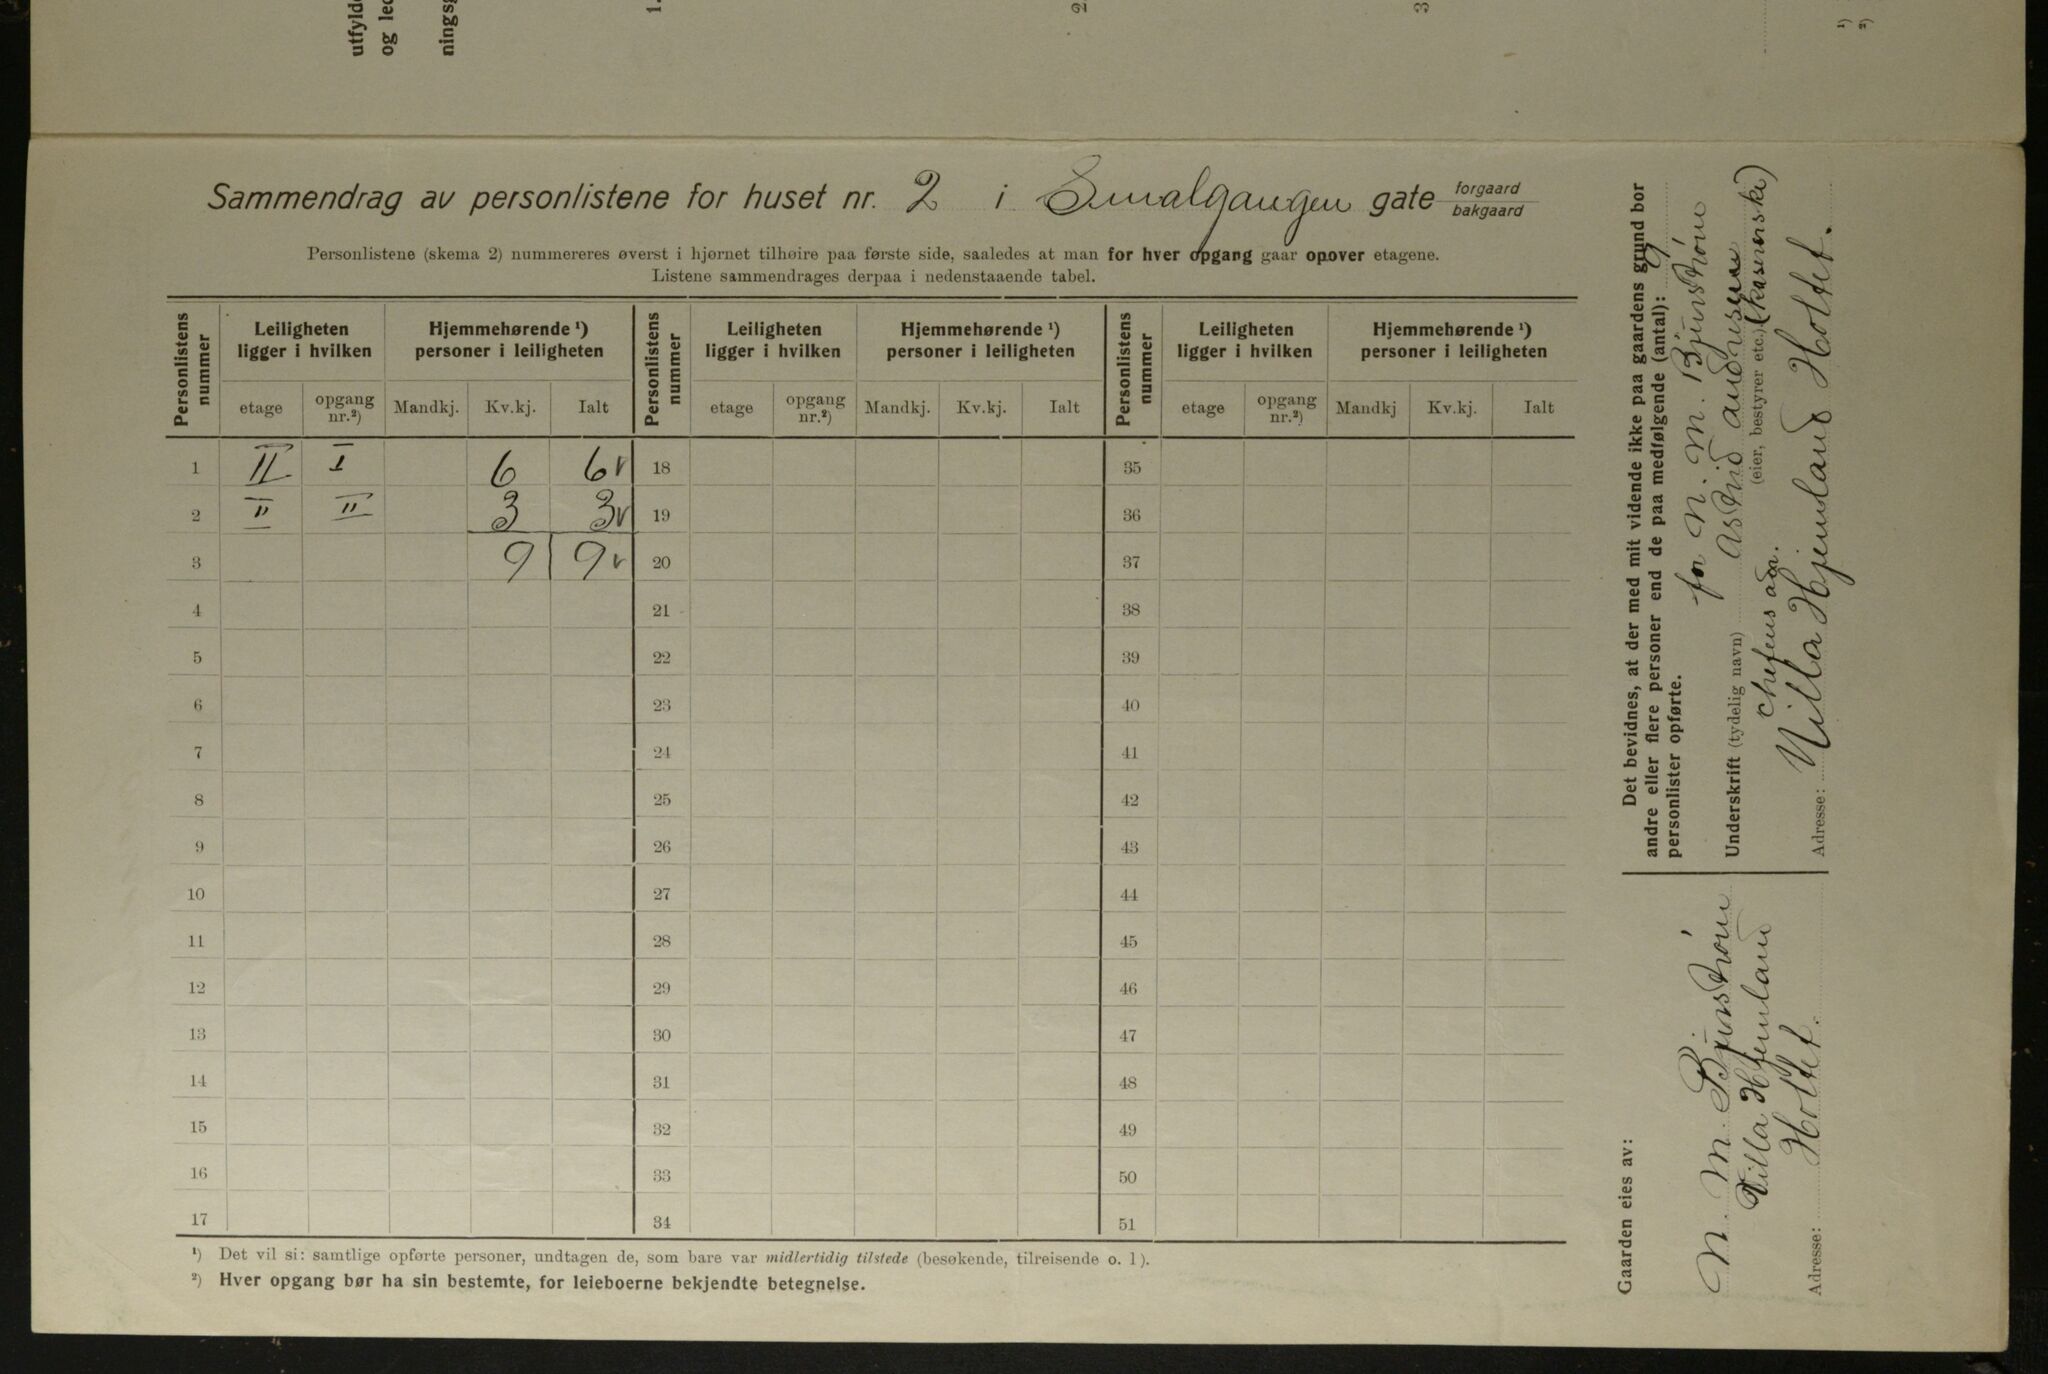 utfylde
og led
nings
1.
2
3
¹)
²)
Sammendrag av personlistene for huset nr. 2 i Smalgangen gate forgaard bakgaard
Personlistene (skema 2) nummereres øverst i hjørnet tilhøire paa første side, saaledes at man for hver opgang gaar opover etagene.
Listene sammendrages derpaa i nedenstaaende tabel.
Personlistens nummer
Leiligheten ligger i hvilken
Hjemmehørende ¹) personer i leiligheten
Personlistens nummer
Leiligheten ligger i hvilken
Hjemmehørende ¹) personer i leiligheten
Personlistens nummer
Leiligheten ligger i hvilken
Hjemmehørende ¹) personer i leiligheten
etage opgang nr.²) Mandkj. Kv.kj. Ialt etage opgang nr.²) Mandkj. Kv.kj. Ialt etage opgang nr.²) Mandkj Kv.kj. Ialt
1 II I 6 6 18 35
2 II II 3 3 19 36
3 9 9 20 37
4 21 38
5 22 39
6 23 40
7 24 41
8 25 42
9 26 43
10 27 44
11 28 45
12 29 46
13 30 47
14 31 48
15 32 49
16 33 50
17 34 51
¹) Det vil si: samtlige opførte personer, undtagen de, som bare var midlertidig tilstede (besøkende, tilreisende o. l).
²) Hver opgang bør ha sin bestemte, for leieboerne bekjendte betegnelse.
Det bevidnes, at der med mit vidende ikke paa gaardens grund bor
andre eller flere personer end de paa medfølgende (antal): 9
personlister opførte.
for N. M. Bjurstrøm
Underskrift (tydelig navn) Astrid
(eier, bestyrer etc.) (kasserske)
chefens adr.
Adresse: Villa Hjemland Holtet.
Gaarden eies av:
N. M. Bjurstrøm
Villa Hjemland
Adresse: Holtet.